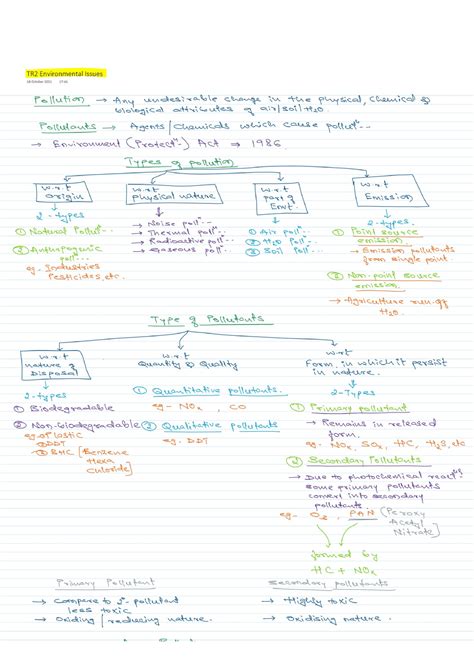 TR2 Environmental Issues
Pollution → Any undesirable change in the physical, chemical &
biological attributes of air/soil/H₂O.
Pollutants → Agents/Chemicals which cause pollutⁿ--
→ Environment (Protectⁿ) Act ⇒ 1986
Types of pollution
w.r.t
origin
2-types
① Natural Pollⁿ--
② Anthropogenic
pollⁿ--
eg- Industries
Pesticides, etc.
w.r.t
physical nature
→ Noise pollⁿ--
→ Thermal pollⁿ--
→ Radioactive pollⁿ--
→ Gaseous pollⁿ--
w.r.t
part of
Envt.
① Air pollⁿ--
② H₂O Pollⁿ--
③ Soil pollⁿ--
w.r.t
Emission
2-types
① Point source
emission
→ Emission pollutants
from single point
② Non-point source
emission
→ Agriculture run-off
H₂O.
Type of Pollutants
w.r.t
nature of
Disposal
2-types
① Biodegradable
② Non-biodegradable
eg-① Plastic
② DDT
③ BHC [Benzene
Hexa
Chloride]
w.r.t
Quantity & Quality
① Quantitative pollutants
eg- NOₓ, CO
② Qualitative pollutants
eg- DDT
w.r.t
Form, in which it persist
in nature.
2-Types
① Primary pollutant
→ Remains in released
form.
eg- NOₓ, SOₓ, HC, H₂S, etc
② Secondary Pollutants
→ Due to photochemical reactⁿ
some primary pollutants
convert into secondary
pollutants.
eg- O₃, PAN (Peroxy
Acetyl
Nitrate)
formed by
HC + NOₓ
Primary Pollutant
→ Compare to 2°-pollutant
less toxic
→ Oxiding/reducing nature.
Secondary pollutants
→ Highly toxic
→ Oxidising nature.